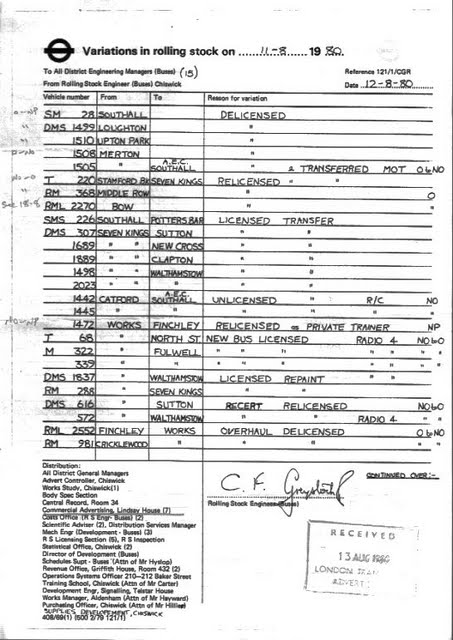 Variations in rolling stock on 11-8 1980.
To All District Engineering Managers (Buses) (15) Reference 121/1/CGR
From Rolling Stock Engineer (Buses) Chiswick Date 12-8-80
Vehicle number From To Reason for variation
SM 28 SOUTHALL DELICENSED
DMS 1499 LOUGHTON "
" 1510 UPTON PARK "
1508 MERTON "
1505 " A.E.C. SOUTHALL " & TRANSFERRED MOT O60NO
T 220 STAMFORD BK SEVEN KINGS RELICENSED " "
RM 368 MIDDLE ROW " O
RML 2270 BOW "
SMS 226 SOUTHALL POTTERS BAR LICENSED TRANSFER
DMS 307 SEVEN KINGS SUTTON " "
1689 " " NEW CROSS " "
1889 " " CLAPTON " "
1498 " " WALTHAMSTOW " "
2023 " " " " "
1442 CATFORD A.E.C. SOUTHALL UNLICENSED " R/C NO
1445 " " " " "
1472 WORKS FINCHLEY RELICENSED as PRIVATE TRAINER NP
T 68 " NORTH ST. NEW BUS LICENSED RADIO 4 NO60
M 322 " FULWELL " " " " " " "
339 " " " " " " " "
DMS 1837 " WALTHAMSTOW LICENSED REPAINT " "
RM 288 " SEVEN KINGS " "
DMS 616 " SUTTON RECERT RELICENSED NO60
572 " WALTHAMSTOW " " RADIO 4 "
RML 2552 FINCHLEY WORKS OVERHAUL DELICENSED O60NO
RM 981 CRICKLEWOOD " " " "
Distribution:
All District General Managers
Advert Controller, Chiswick
Works Study, Chiswick(1)
Body Spec Section
Central Record, Room 34
Commercial Advertising, Lindsay House (7)
Costs Office (R S Engr- Buses) (2)
Scientific Adviser (2), Distribution Services Manager
Mech Engr (Development - Buses) (3)
R S Licensing Section (5), R S Inspection
Statistical Office, Chiswick (2)
Director of Development (Buses)
Schedules Supt - Buses (Attn of Mr Hyslop)
Revenue Office, Griffith House, Room 432 (2)
Operations Systems Officer 210-212 Baker Street
Training School, Chiswick (Attn of Mr Carter)
Development Engr, Signalling, Telstar House
Works Manager, Aldenham (Attn of Mr Hayward)
Purchasing Officer, Chiswick (Attn of Mr Hillier)
SUPPLIES DEVELOPMENT, CHISWICK
408/69(1) (500 2/79 121/1)
CONTINUED OVER:-
Rolling Stock Engineer (Buses)
RECEIVED
13 AUG 1980
LONDON
ADVERT